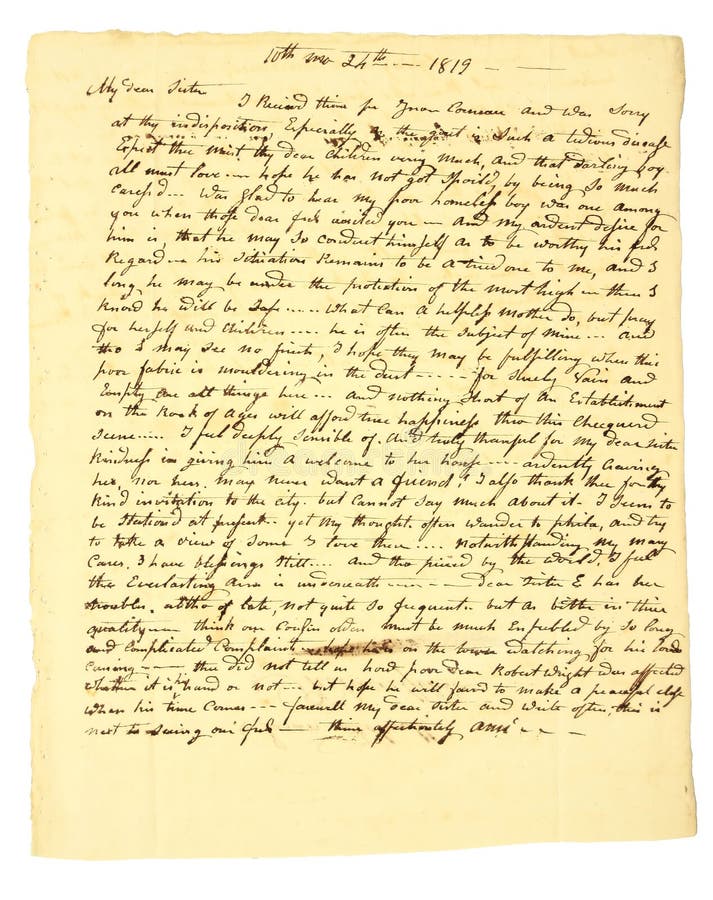 10th mo 24th - - 1819 - -
My dear Sister
I Recievd thine pr and was Sorry
at thy indisposition, Especially as the gout is Such a tedious disease
Expect thee mist thy dear Children very Much, and that Darling boy
all must love - - hope he has not got Spoild, by being So much
Caress'd - - was glad to hear my poor homeless boy was one among
you when those dear frds visited you - and My ardent desire for
him is, that he may So conduct himself as to be worthy his frds
Regard - his Situation Remains to be a tried one to me, and I
long he may be under the protection of the most high - then I
know he will be Safe - - - - What Can a helpless Mother do, but pray
for herself and Children - - - he is often the Subject of mine - - and
tho I may See no fruits, I hope they may be fulfilling when this
poor fabric is mouldering in the dust - - - - for Surely Vain and
Empty are all things here - - and nothing Short of An Establishment
on the Rock of Ages will afford true happiness thro this Checquerd
Scene - - - I feel deeply Sensible of, And truly thankful for My dear Sister
Kindness in giving him a welcome to her house - - - ardently Craving
her, nor hers may never want a friend! I also thank thee for thy
kind invitation to the city - but Cannot say much about it. I Seem to
be Station'd at present - yet My thoughts often wander to phila, and try
to take a view of Some I love there - - - notwithstanding my many
Cares, I have blessings Still - - - and tho by the world, I feel
the Everlasting Arm is underneath - - - - - dear Sister E has her
troubles, altho of late, not quite So frequent - but as better in their
quality - - think our Cousin must be much Enfeebled by So long
and Complicated Complaint - hope he is on the tower Watching for his Lords
Coming - - - thee did not tell us how poor Dear Robert Wright was affected
whether it is his hand or not - - but hope he will favrd to make a peaceful close
When his time Comes - - - farewell my dear Sister and write often, this is
next to Seeing our frds - thine affectionately Ann - - -